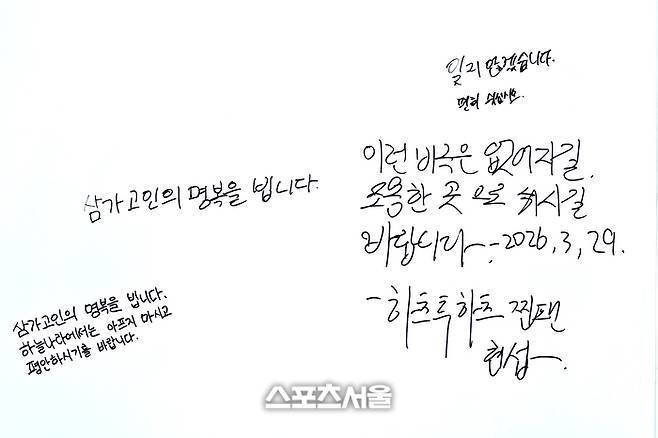 삼가고인의 명복을 빕니다.
삼가고인의 명복을 빕니다.
하늘나라에서는 아프지 마시고
평안하시기를 바랍니다.
잊지 않겠습니다.
편히 쉬십시요.
이런 비극은 없어지길.
조용한 곳으로 가시길
바랍니다~. 2026. 3, 29.
- 하츠투하츠 찐팬
현섭~.
스포츠서울